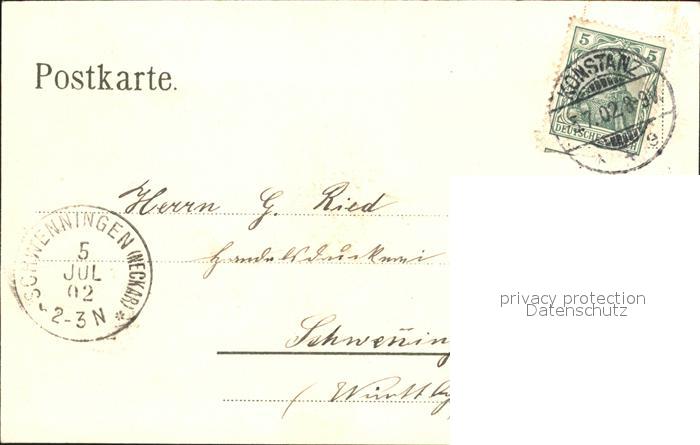 Postkarte.
5 5
KONSTANZ
5.7.02.8-9V.
DEUTSCHES REICH
Herrn G. Ried
Handelsdruckerei
SCHWENNINGEN (NECKAR)
5
JUL
02
2-3 N
*
privacy protection
Datenschutz
Schwennin
(Württbg